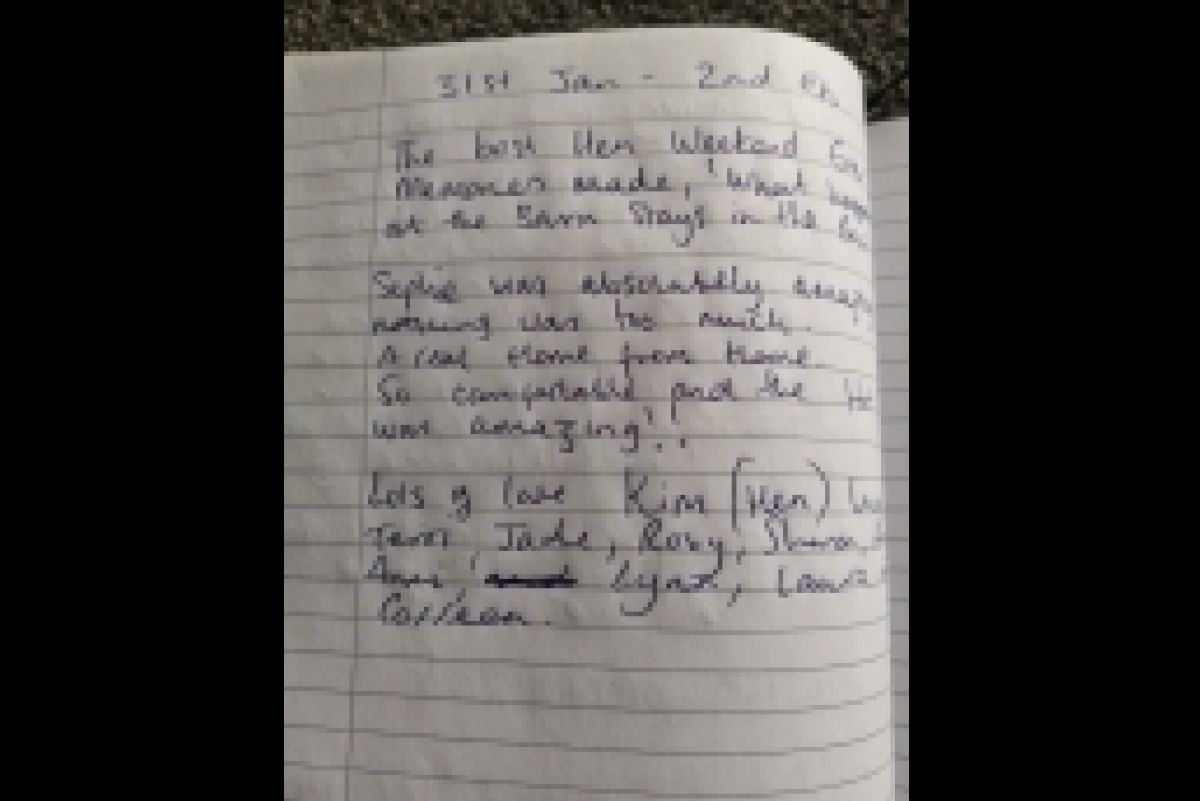 31st Jan - 2nd Feb
The best Hen Weekend
Memories made, 'What
at the Barn Stays in the
Sophie was absolutely
nothing was too much.
A real Home from Home.
So comfortable and the
was amazing!!
Lots of love Kim (Hen)
Terri, Jade, Rosy,
Lynz,
Colleen.